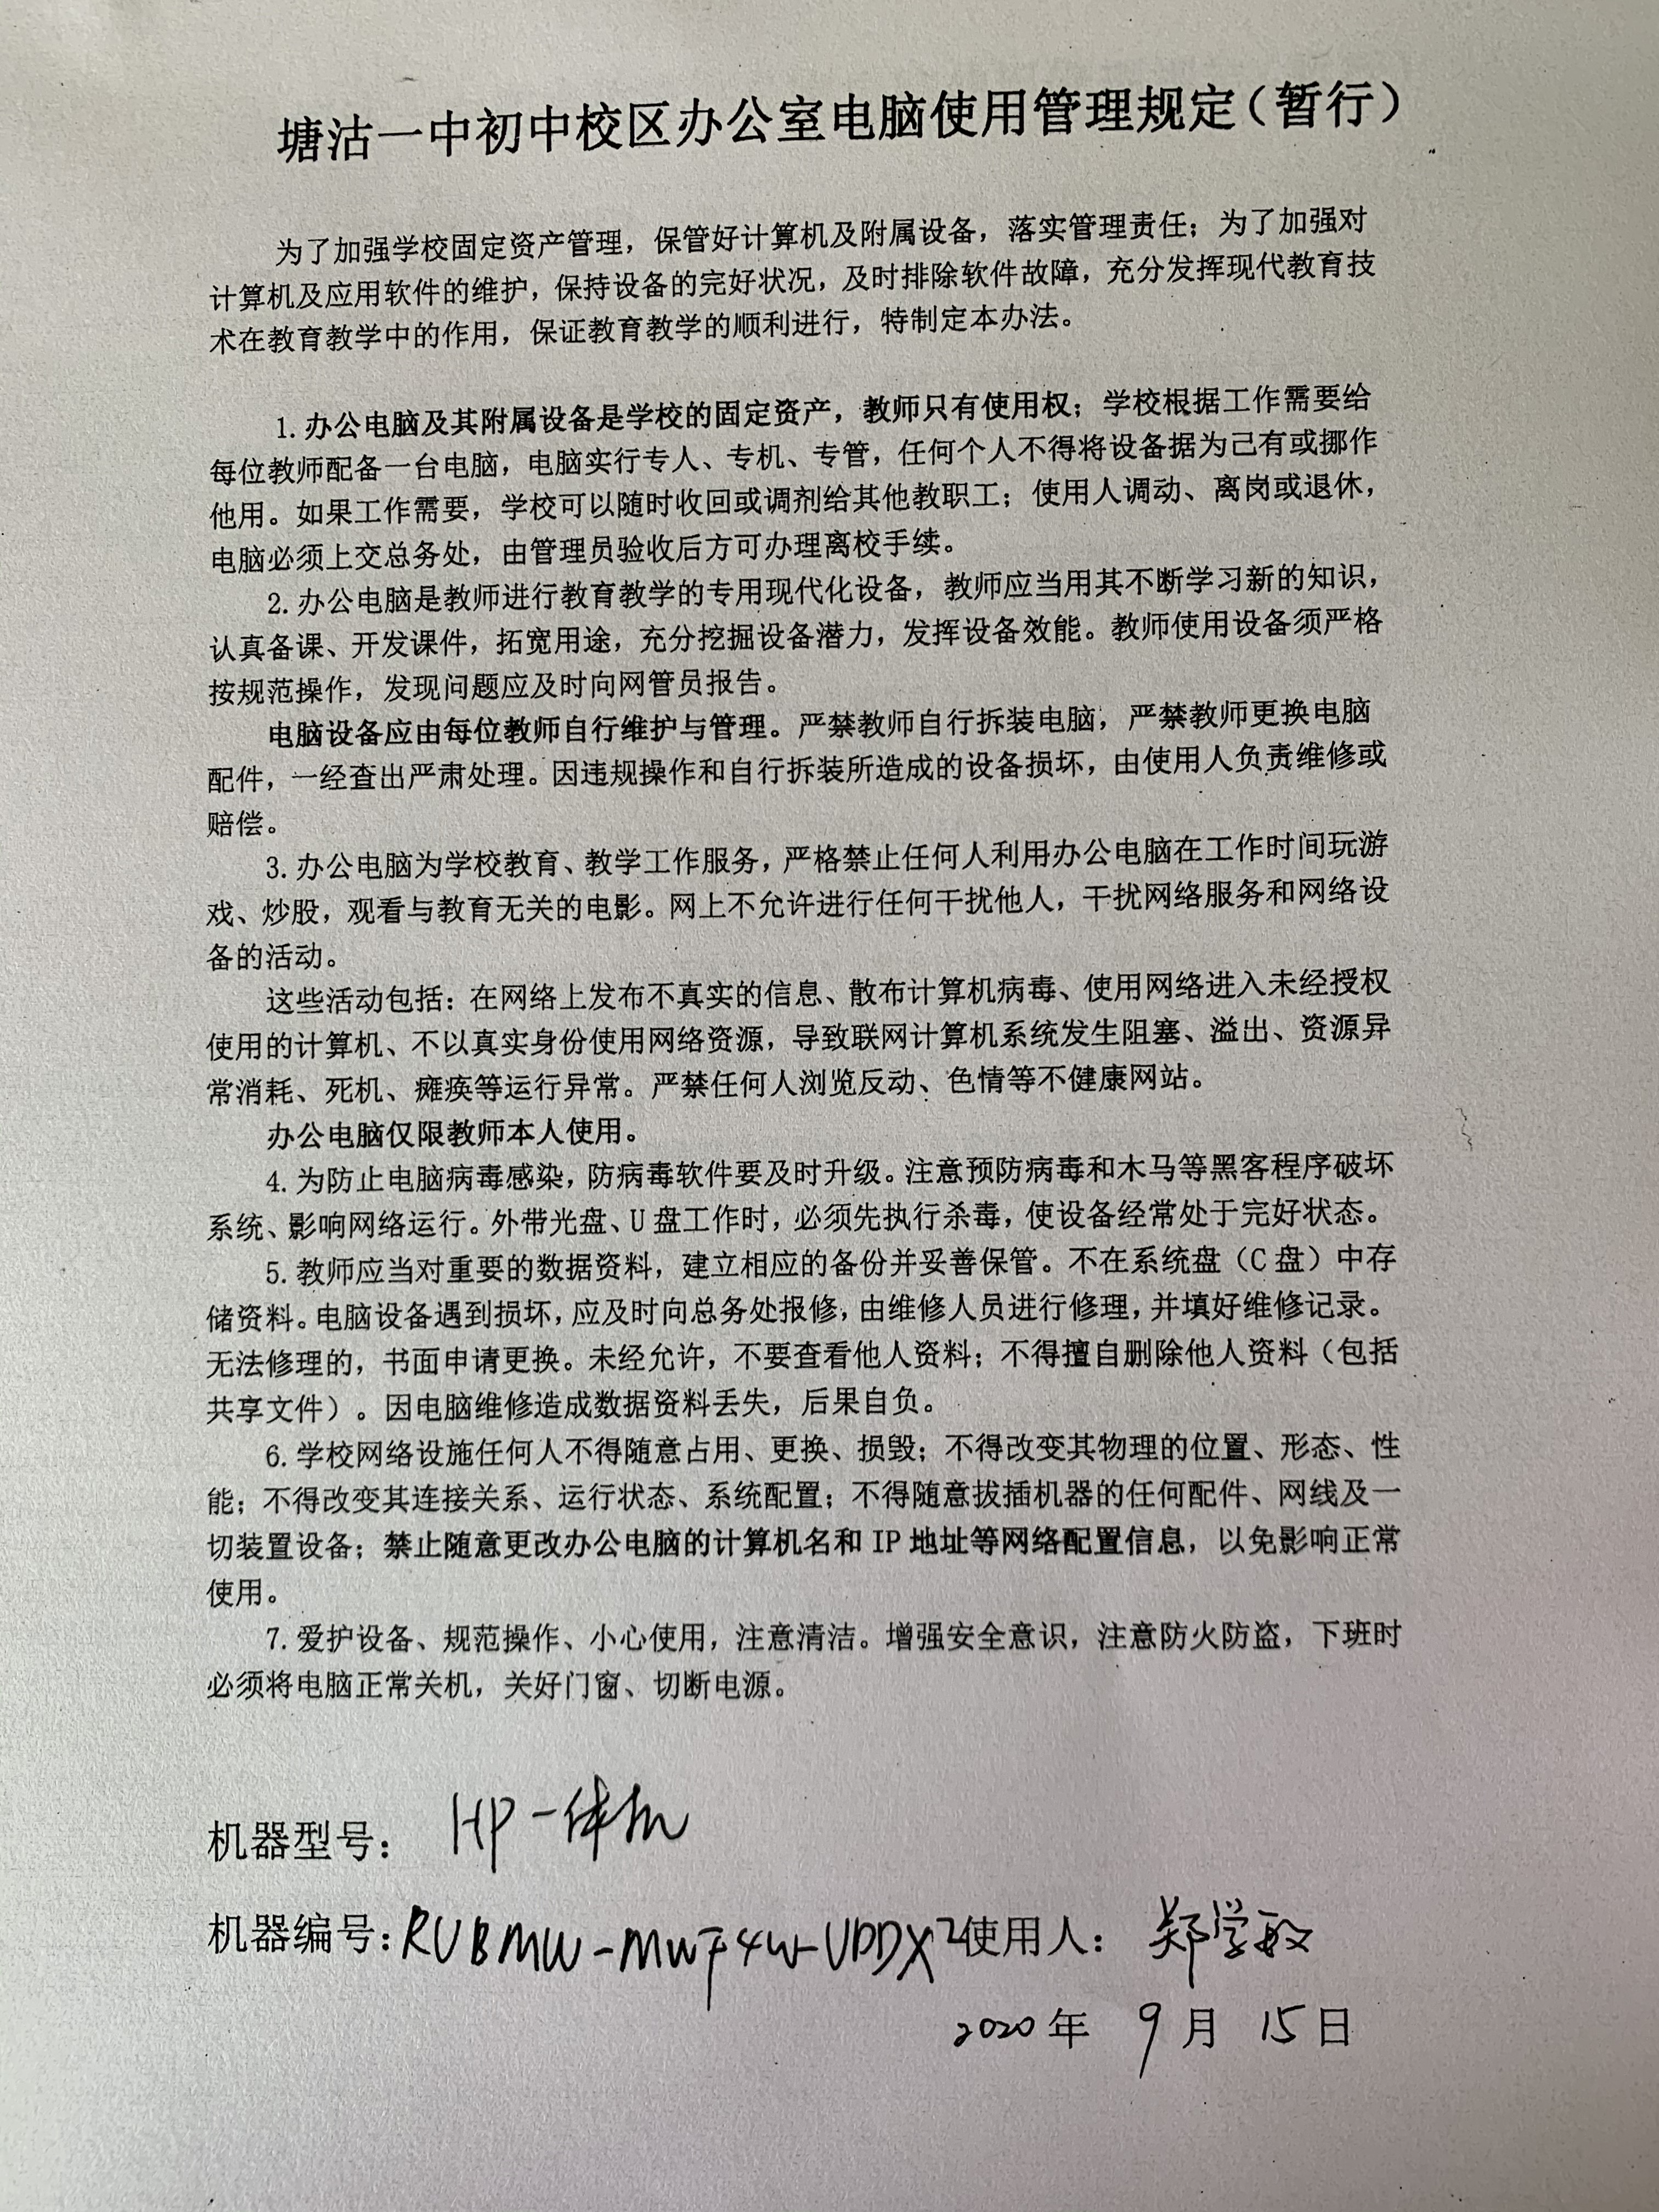 塘沽一中初中校区办公室电脑使用管理规定（暂行）
为了加强学校固定资产管理，保管好计算机及附属设备，落实管理责任；为了加强对
计算机及应用软件的维护，保持设备的完好状况，及时排除软件故障，充分发挥现代教育技
术在教育教学中的作用，保证教育教学的顺利进行，特制定本办法。
1.办公电脑及其附属设备是学校的固定资产，教师只有使用权；学校根据工作需要给
每位教师配备一台电脑，电脑实行专人、专机、专管，任何个人不得将设备据为己有或挪作
他用。如果工作需要，学校可以随时收回或调剂给其他教职工；使用人调动、离岗或退休，
电脑必须上交总务处，由管理员验收后方可办理离校手续。
2.办公电脑是教师进行教育教学的专用现代化设备，教师应当用其不断学习新的知识，
认真备课、开发课件，拓宽用途，充分挖掘设备潜力，发挥设备效能。教师使用设备须严格
按规范操作，发现问题应及时向网管员报告。
电脑设备应由每位教师自行维护与管理。严禁教师自行拆装电脑，严禁教师更换电脑
配件，一经查出严肃处理。因违规操作和自行拆装所造成的设备损坏，由使用人负责维修或
赔偿。
3.办公电脑为学校教育、教学工作服务，严格禁止任何人利用办公电脑在工作时间玩游
戏、炒股，观看与教育无关的电影。网上不允许进行任何干扰他人，干扰网络服务和网络设
备的活动。
这些活动包括：在网络上发布不真实的信息、散布计算机病毒、使用网络进入未经授权
使用的计算机、不以真实身份使用网络资源，导致联网计算机系统发生阻塞、溢出、资源异
常消耗、死机、瘫痪等运行异常。严禁任何人浏览反动、色情等不健康网站。
办公电脑仅限教师本人使用。
4.为防止电脑病毒感染，防病毒软件要及时升级。注意预防病毒和木马等黑客程序破坏
系统、影响网络运行。外带光盘、U盘工作时，必须先执行杀毒，使设备经常处于完好状态。
5.教师应当对重要的数据资料，建立相应的备份并妥善保管。不在系统盘（C盘）中存
储资料。电脑设备遇到损坏，应及时向总务处报修，由维修人员进行修理，并填好维修记录。
无法修理的，书面申请更换。未经允许，不要查看他人资料；不得擅自删除他人资料（包括
共享文件）。因电脑维修造成数据资料丢失，后果自负。
6.学校网络设施任何人不得随意占用、更换、损毁；不得改变其物理的位置、形态、性
能；不得改变其连接关系、运行状态、系统配置；不得随意拔插机器的任何配件、网线及一
切装置设备；禁止随意更改办公电脑的计算机名和IP地址等网络配置信息，以免影响正常
使用。
7.爱护设备、规范操作、小心使用，注意清洁。增强安全意识，注意防火防盗，下班时
必须将电脑正常关机，关好门窗、切断电源。
机器型号： HP一体机
机器编号：RUBMW-MWF4W-UDDX2 使用人： 郑学敏
2020年 9月 15日